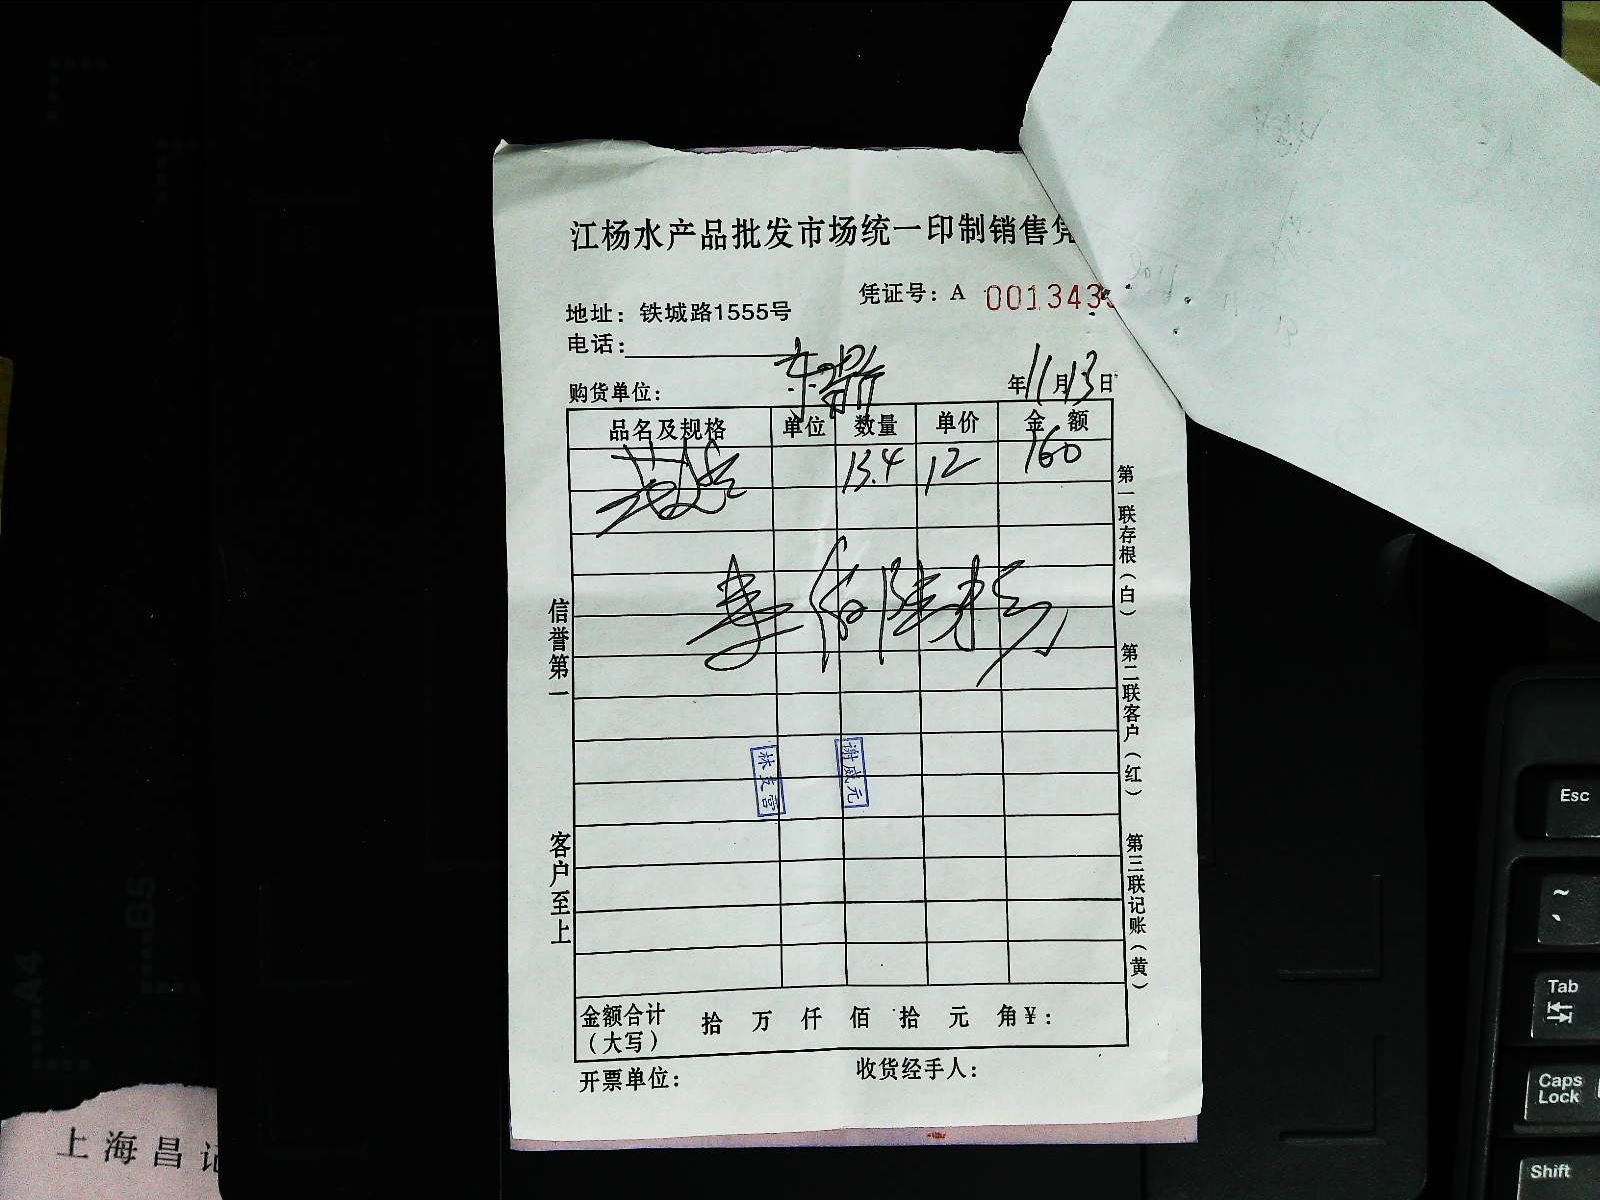 江杨水产品批发市场统一印制销售凭
凭证号：A 001343
地址：铁城路1555号
电话：
购货单位： 年11月13日
品名及规格 单位 数量 单价 金额
13.4 12 160
信誉第一
客户至上
第一联存根（白）
第二联客户（红）
第三联记账（黄）
谢威元
金额合计（大写） 拾 万 仟 佰 拾 元 角 ¥：
开票单位： 收货经手人：
上海昌记
Esc
~
Tab
Caps Lock
Shift
B5
A4